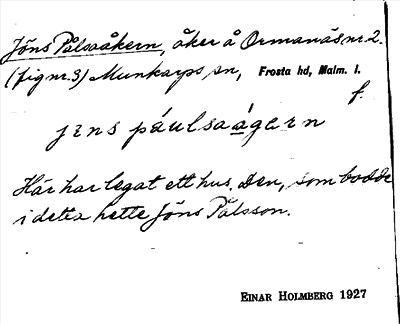 Jöns Pålsaåkern, åker å Ormanäs nr. 2.
(fig nr. 3) Munkarps sn, Frosta hd, Malm. l.
f.
jens påulsaagern
Här har legat ett hus. Den, som bodde
i detta hette Jöns Pålsson.
EINAR HOLMBERG 1927